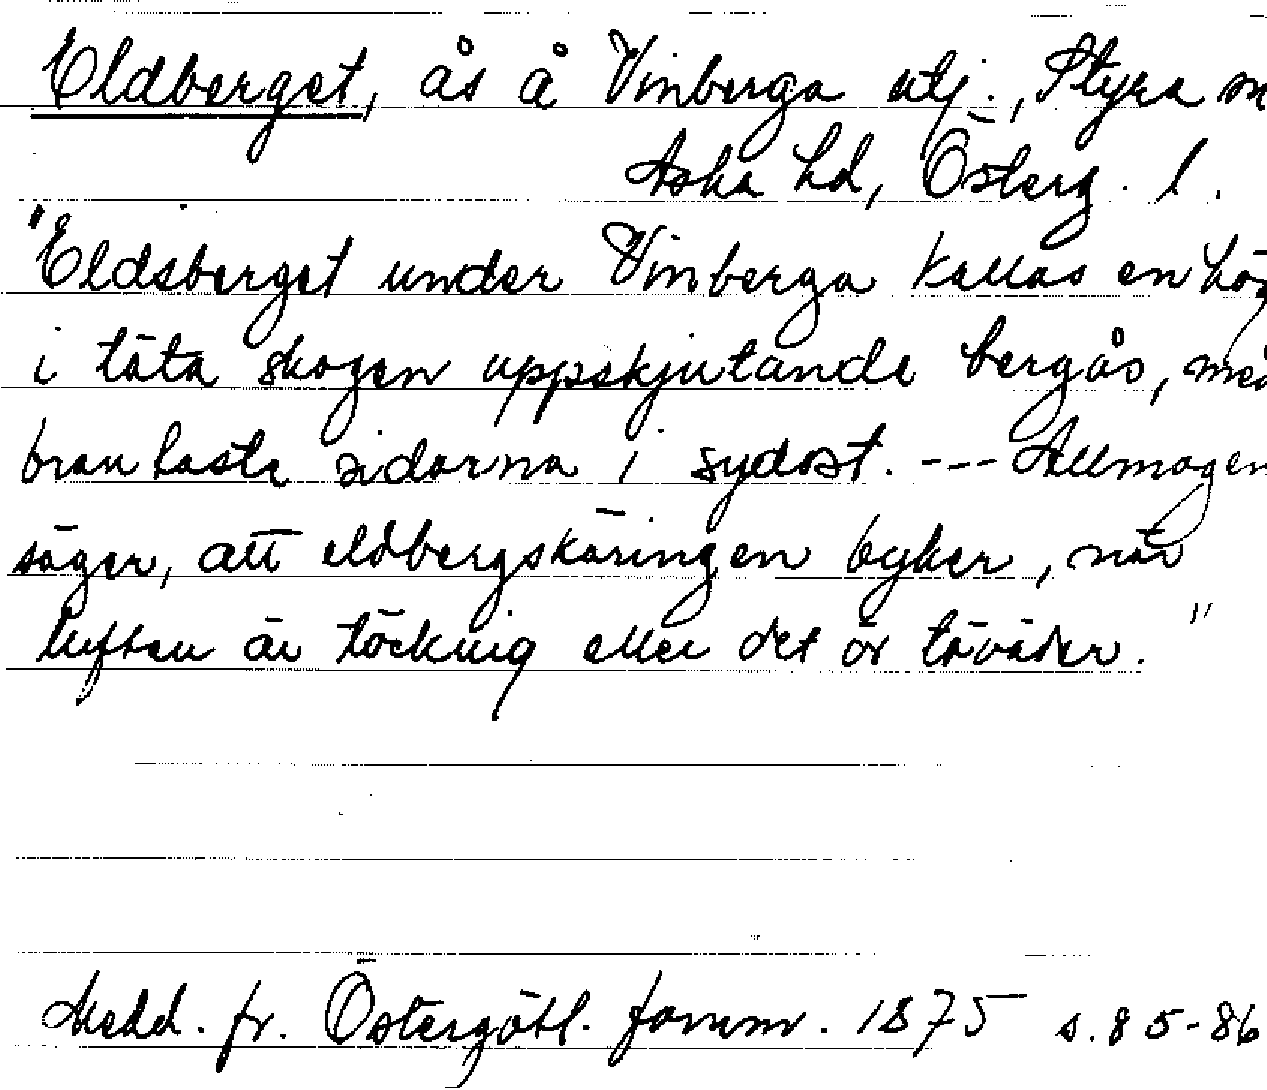 Eldberget, ås å Vinberga utj., Styra
Aska hd, Österg. l.
"Eldsberget under Vinberga kallas en hög
i täta skogen uppskjutande bergås, med
brantaste sidorna i sydost. --- Allmogen
säger, att eldbergskäringen byker, när
luften är töcknig eller det är töväder."
Medd. fr. Östergötl. fornm. 1875 s. 85-86